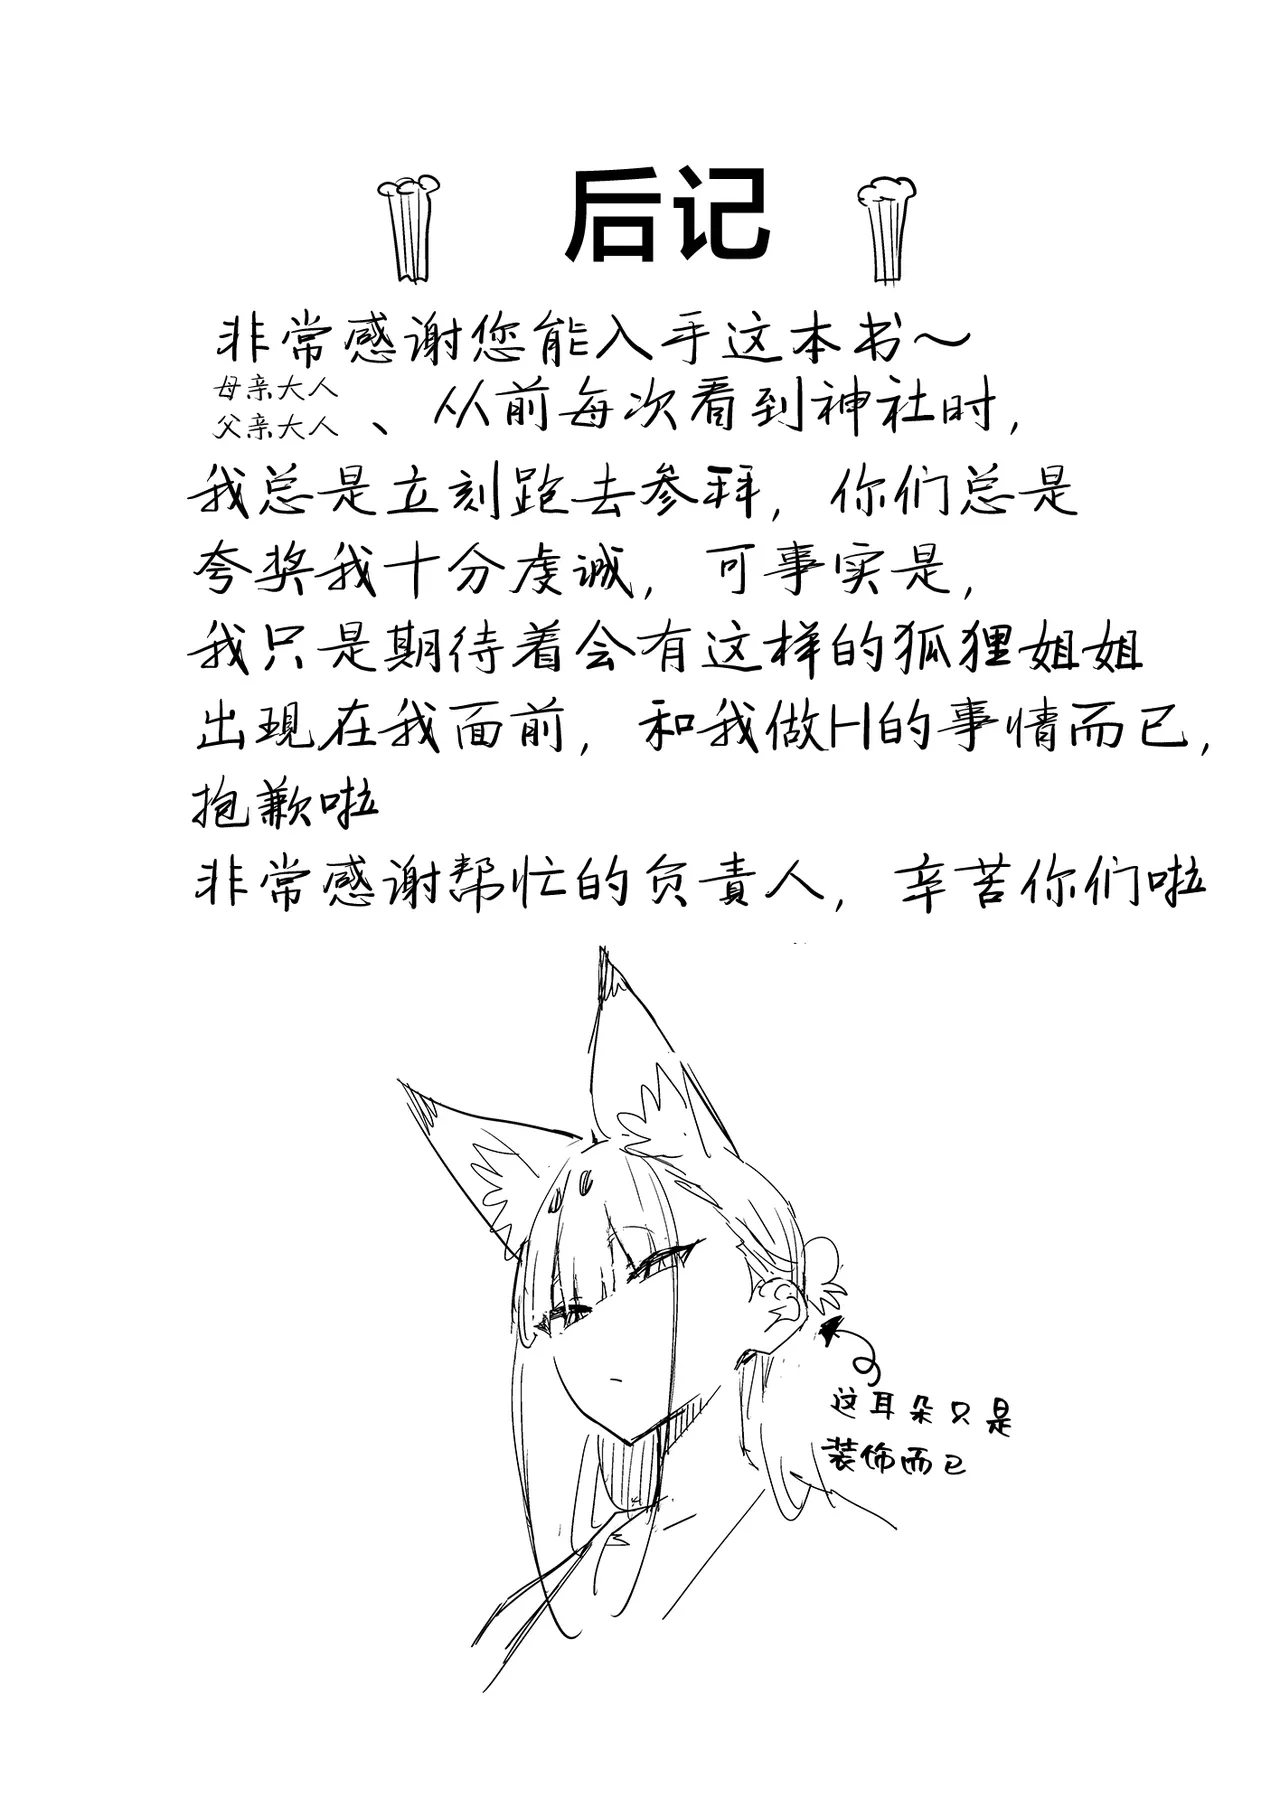 后记
非常感谢您能入手这本书～
母亲大人
父亲大人、从前每次看到神社时，
我总是立刻跑去参拜，你们总是
夸奖我十分虔诚，可事实是，
我只是期待着会有这样的狐狸姐姐
出现在我面前，和我做H的事情而已，
抱歉啦
非常感谢帮忙的负责人，辛苦你们啦
这耳朵只是
装饰而已